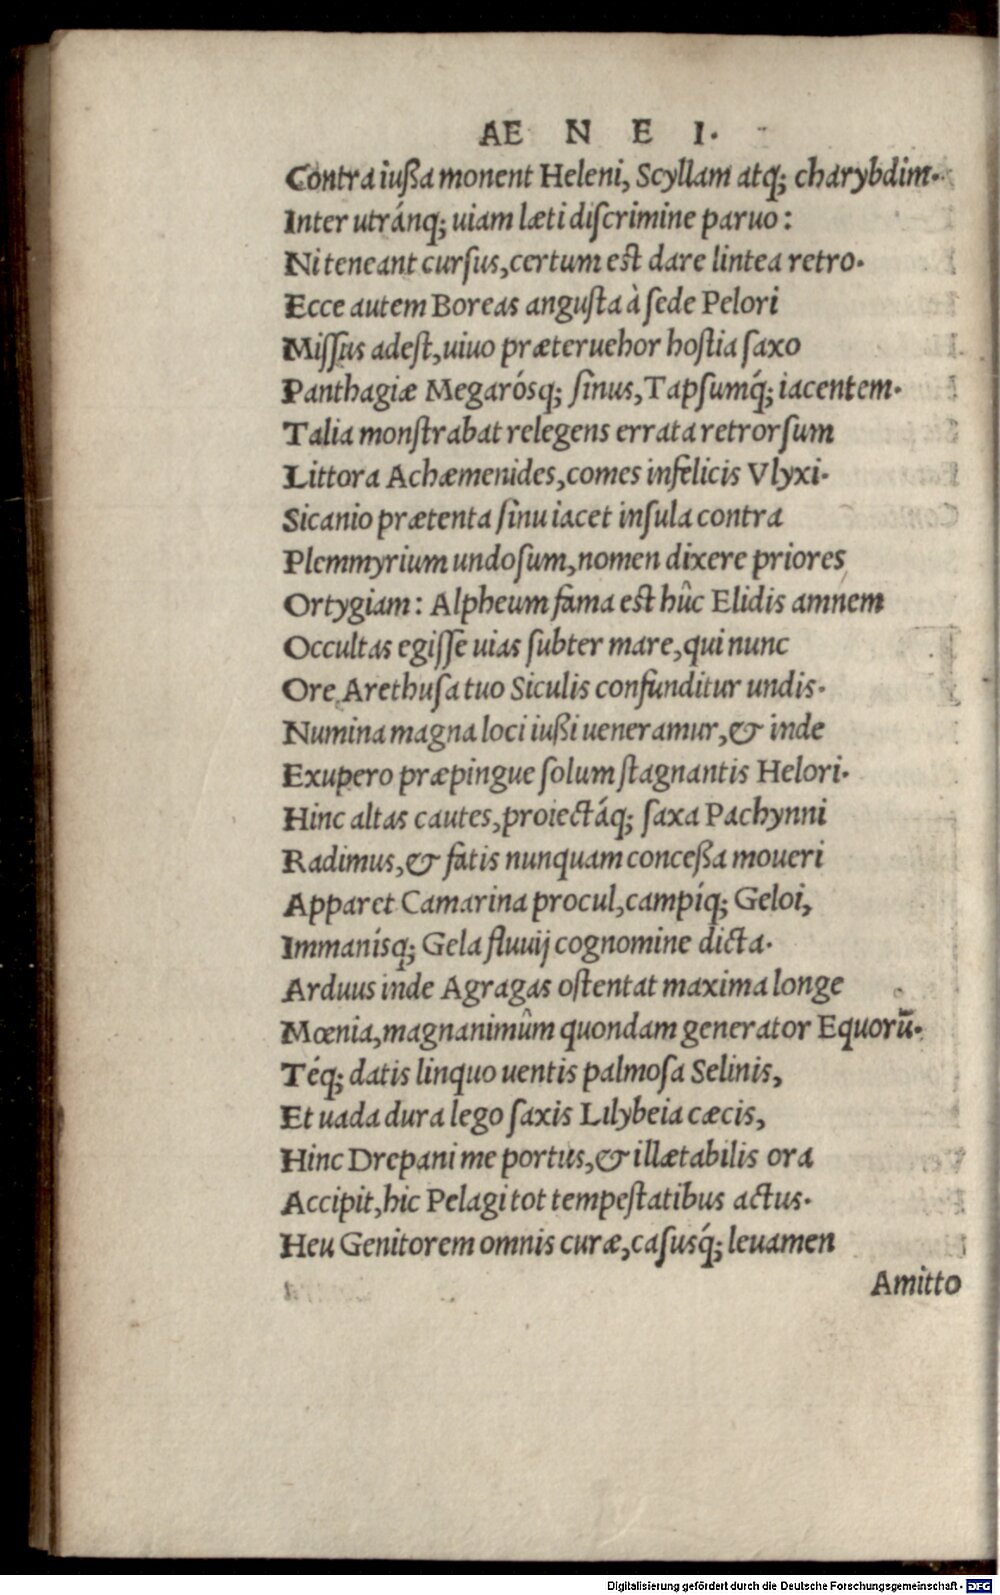 AE N E I.
Contra iußa monent Heleni, Scyllam atq; charybdim.
Inter utránq; uiam læti diſcrimine paruo:
Ni teneant curſus, certum est dare lintea retro.
Ecce autem Boreas anguſta à ſede Pelori
Miſſus adeſt, uiuo præteruehor hoſtia ſaxo
Panthagiæ Megarósq; ſinus, Tapſumq́; iacentem.
Talia monſtrabat relegens errata retrorſum
Littora Achæmenides, comes infelicis Vlyxi.
Sicanio prætenta ſinu iacet inſula contra
Plemmyrium undoſum, nomen dixere priores
Ortygiam: Alpheum fama est hûc Elidis amnem
Occultas egiſſe uias ſubter mare, qui nunc
Ore Arethuſa tuo Siculis confunditur undis.
Numina magna loci iußi ueneramur, & inde
Exupero præpingue ſolum ſtagnantis Helori.
Hinc altas cautes, proiectáq; ſaxa Pachynni
Radimus, & fatis nunquam conceßa moueri
Apparet Camarina procul, campíq; Geloi,
Immanísq; Gela fluuij cognomine dicta.
Arduus inde Agragas oſtentat maxima longe
Mœnia, magnanimûm quondam generator Equorū.
Téq; datis linquo uentis palmoſa Selinis,
Et uada dura lego ſaxis Lilybeia cæcis,
Hinc Drepani me portus, & illætabilis ora
Accipit, hic Pelagi tot tempeſtatibus actus.
Heu Genitorem omnis curæ, caſusq́; leuamen
Amitto
Digitalisierung gefördert durch die Deutsche Forschungsgemeinschaft - DFG